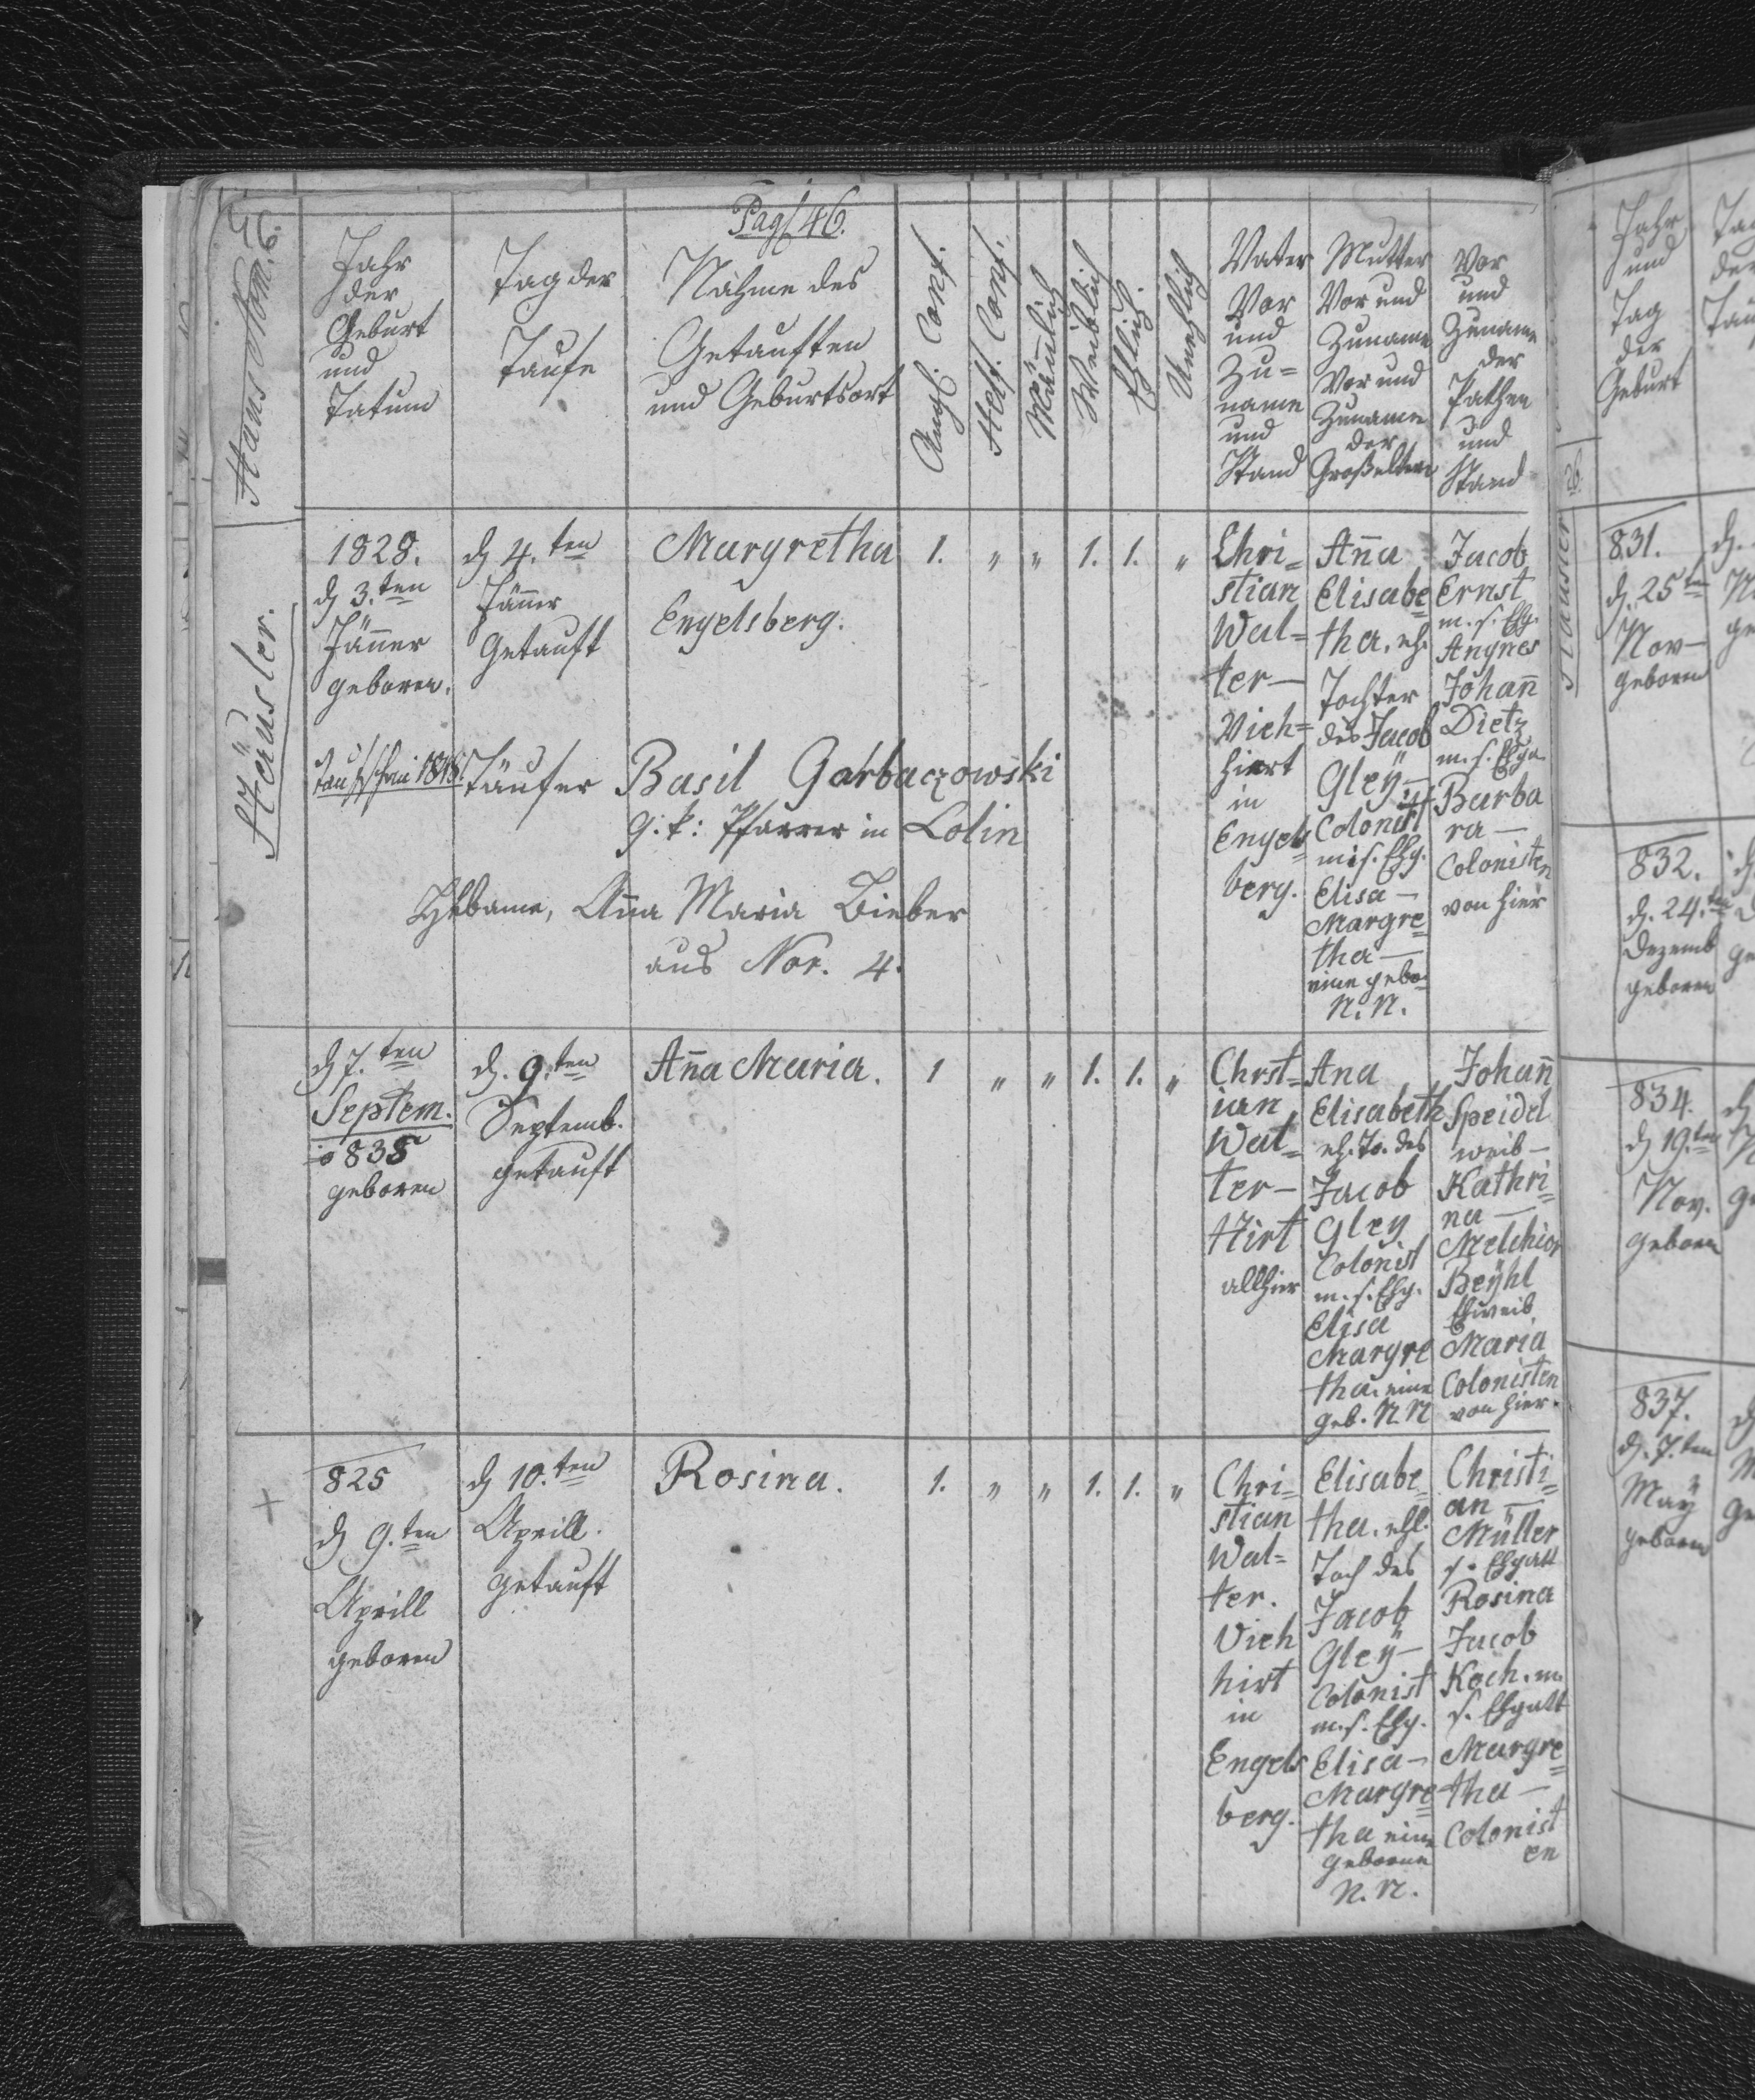 Pag. 46.
Haus Nom. 6.
Jahr
der
Geburt
und
Datum
Tag der
Taufe
Nahme des
Getauften
und Geburtsort
Augs. Conf.
Helf. Conf.
Mänlich
Weiblich
Ehlich.
Unehlich
Vater
Vor
und
Zu=
name
und
Stand
Mutter
Vor und
Zuname
Vor und
Zuname
der
Großeltern
Vor
und
Zuname
der
Pathen
und
Stand
Häusler.
1828.
d 3.ten
Jäner
geboren.
d 4.ten
Jäner
Getauft
Margretha
Engelsberg.
1. " " 1. 1. "
Chri=
stian
Wal=
ter—
Vieh=
hiert
in
Engels
berg.
Aña
Elisabe
tha. eh.
Tochter
des Jacob
Gleÿ—
Colonist
m. s. Ehg.
Elisa—
Margre=
tha—
eine gebo=
N. N.
Jacob
Ernst
m. s. Ehg.
Angnes
Johañ
Dietz
m. s. Ehga.
Barba
ra—
Colonisten
von hier
Taufschein 1848.
Täufer Basil Garbaczowski
g. k: Pfarrer in Lolin
Hebame, Aña Maria Bieber
aus Nor. 4.
d 7.ten
Septem.
835
geboren
d. 9.ten
Septemb.
getauft
Aña Maria.
1 " " 1. 1. "
Chrst=
ian
Wal=
ter—
Hirt
allhier
Ana
Elisabeth
eh. To. des
Jacob
Gley
Colonist
m. s. Ehg.
Elisa
Margre
tha. eine
geb. N. N
Johañ
Speidel
weib—
Kathri=
na—
Melchior
Beÿhl
Ehweib
Maria
Colonisten
von hier.
825
d 9.ten
Aprill
geboren
d 10.ten
Aprill.
getauft
Rosina.
1. " " 1. 1. "
Chri=
stian
Wal=
ter.
Vieh
hirt
in
Engels
berg.
Elisabe=
tha. ehl.
Toch des
Jacob
Gleÿ—
Colonist
m. s. Ehg.
Elisa—
Margre=
tha eine
geborne
N. N.
Christi=
an—
Müller
s. Ehgatt
Rosina
Jacob
Koch. m.
s. Ehgatt
Margre=
tha—
Colonist
en
Jahr
und
Tag
der
Geburt
26.
Häusler
831.
d. 25ten
Nov—
geboren
832.
d. 24.ten
Dezemb
geboren
834.
d 19.ten
Nov.
geboren
837.
d. 7.ten
Maÿ
geboren